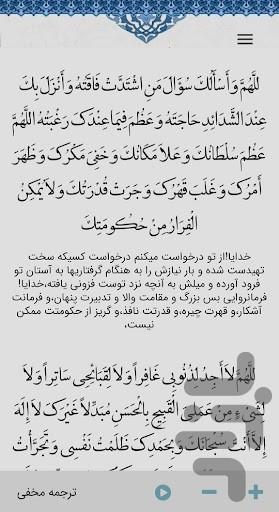 للَّهُمَّ وَ أَسْأَلُكَ سُؤَالَ مَنِ اشْتَدَّتْ فَاقَتُهُ وَ أَنْزَلَ بِكَ
عِنْدَ الشَّدَائِدِ حَاجَتَهُ وَ عَظُمَ فِیمَا عِنْدَکَ رَغْبَتُهُ اللَّهُمَّ
عَظُمَ سُلْطَانُكَ وَ عَلاَ مَکَانُكَ وَ خَفِیَ مَکْرُكَ وَ ظَهَرَ
أَمْرُکَ وَ غَلَبَ قَهْرُکَ وَ جَرَتْ قُدْرَتُكَ وَ لاَ یُمْکِنُ
الْفِرَارُ مِنْ حُکُومَتِكَ
خدایا!از تو درخواست میکنم درخواست کسیکه سخت
تهیدست شده و بار نیازش را به هنگام گرفتاریها به آستان تو
فرود آورده و میلش به آنچه نزد توست فزونی یافته،خدایا!
فرمانروایی بس بزرگ و مقامت والا و تدبیرت پنهان،و فرمانت
آشکار،و قهرت چیره،و قدرتت نافذ،و گریز از حکومتت ممکن
نیست،
للَّهُمَّ لاَ أَجِدُ لِذُنُوبِی غَافِراً وَ لاَ لِقَبَائِحِی سَاتِراً وَ لاَ
لِشَیْءٍ مِنْ عَمَلِیَ الْقَبِیحِ بِالْحَسَنِ مُبَدِّلاً غَیْرَكَ لاَ إِلَهَ
إِلاَّ أَنْتَ سُبْحَانَكَ وَ بِحَمْدِکَ ظَلَمْتُ نَفْسِی وَ تَجَرَّأْتُ
ترجمه مخفی